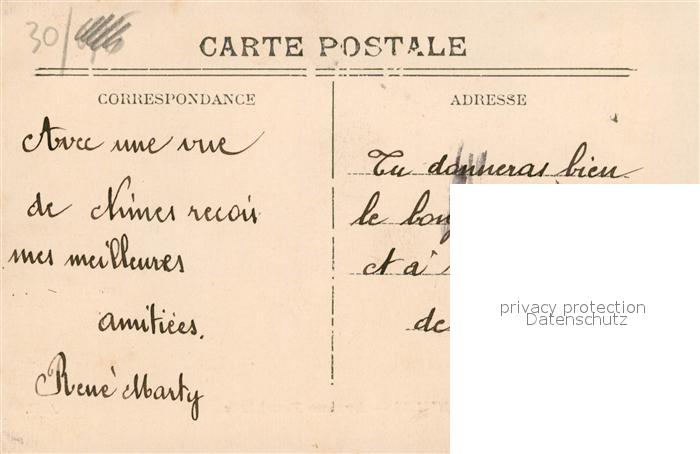 30/
CARTE POSTALE
CORRESPONDANCE
ADRESSE
Avec une vue
de Nîmes reçois
mes meilleures
amitiées.
René Marty
Tu donneras bien
le
et à
de
privacy protection
Datenschutz